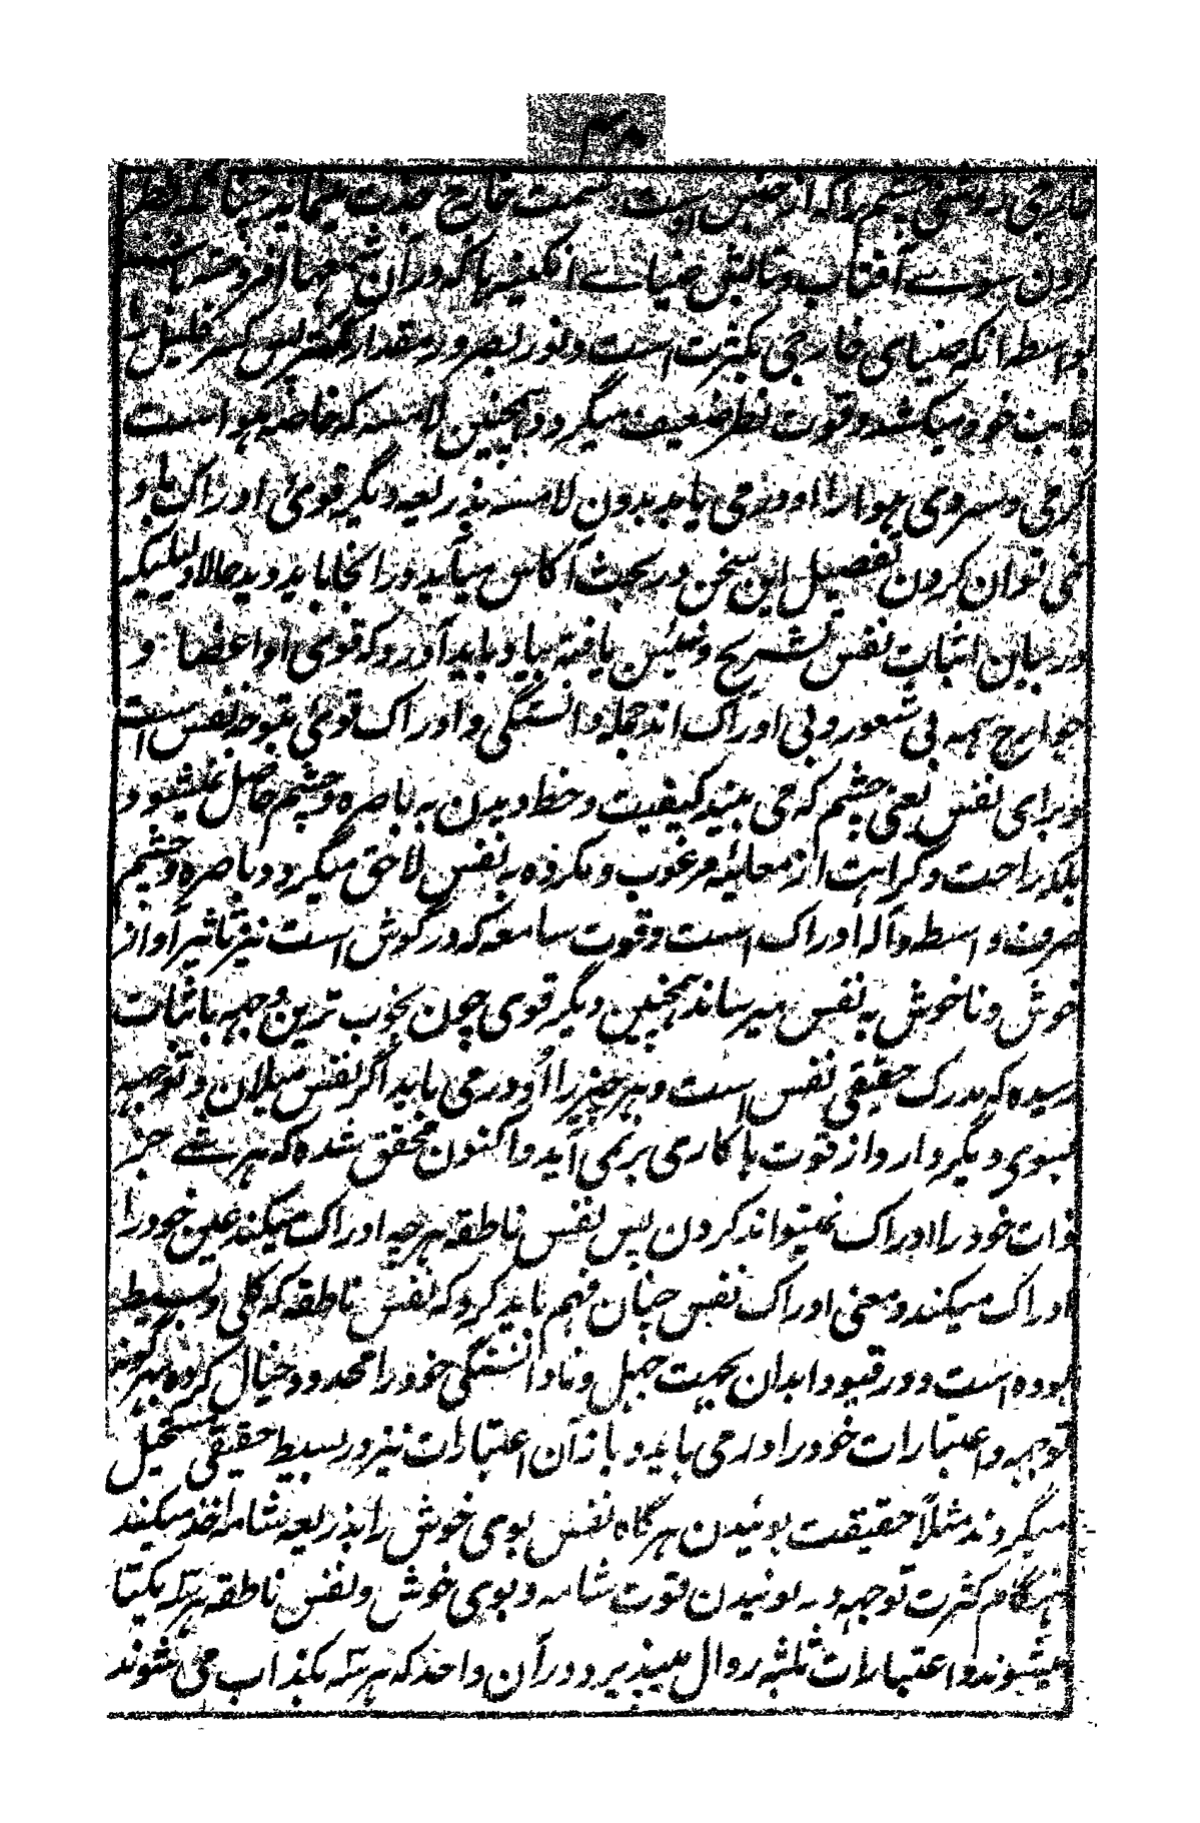 خارجی روشنی چشم را که از جنس اوست بسمت خارج جذب مینماید چنانکه نظر
کردن سوے آفتاب و تابش ضیاے آبگینه ها که در آن شمعها افروخته باشند
بواسطه آنکه ضیای خارجی بکثرت است و نور بصر در مقدار کمتر پس کثیر قلیل را
جانب خود میکشد و قوت نظر ضعیف میگردد همچنین لامسه که خاصه هوا است
گرمی و سردی هوا را او درمی یابد بدون لامسه بذریعه دیگر قوی ادراک باو
نمی توان کردن تفصیل این سخن در بحث آکاس میآید در انجا باید دید حالا دلیلیکه
در بیان اثبات نفس تشریح و تبیین یافته بیاد باید آورد که قوی او اعضا و
جوارح همه بی شعور و بی ادراک اند جمله دانستگی و ادراک قوی بتوجه نفس است
و برای نفس یعنی چشم که می بیند کیفیت و حظ دیدن به باصره و چشم حاصل نمیشود و
بلکه راحت و کراهت از معاینه مرغوب و مکروه به نفس لاحق میگردد و باصره و چشم
صرف واسطه و آله ادراک است و قوت سامعه که در گوش است نیز تاثیر آواز
خوش و ناخوش به نفس میرساند همچنین دیگر قوی چون بخوب ترین وجهه باثبات
رسیده که مدرک حقیقی نفس است و هر چیز را او درمی یابد اگر نفس میلان و توجهه
بسوی دیگر دارد از قوت ها کاری برنمی آید و اکنون محقق شده که هر شے جز
ذات خود را ادراک نمیتواند کردن پس نفس ناطقه هرچه ادراک میکند عین خود را
ادراک میکند و معنی ادراک نفس چنان فهم باید کرد که نفس ناطقه که کلی و بسیط
بوده است و در قیود ابدان بجهت جهل و نادانستگی خود را محدود خیال کرده بهر گونه
توجهه و اعتبارات خود را درمی یابد و باز آن اعتبارات نیز در بسیط حقیقی مستحیل
میگردند مثلاً حقیقت بوئیدن هرگاه نفس بوی خوش را بذریعه شامه اخذ میکند
هنگام کثرت توجهه به بوئیدن قوت شامه و بوی خوش و نفس ناطقه هر سه یکتا
میشوند و اعتبارات ثلثه زوال میپذیرد و در آن واحد که هر سه یکذات می شوند